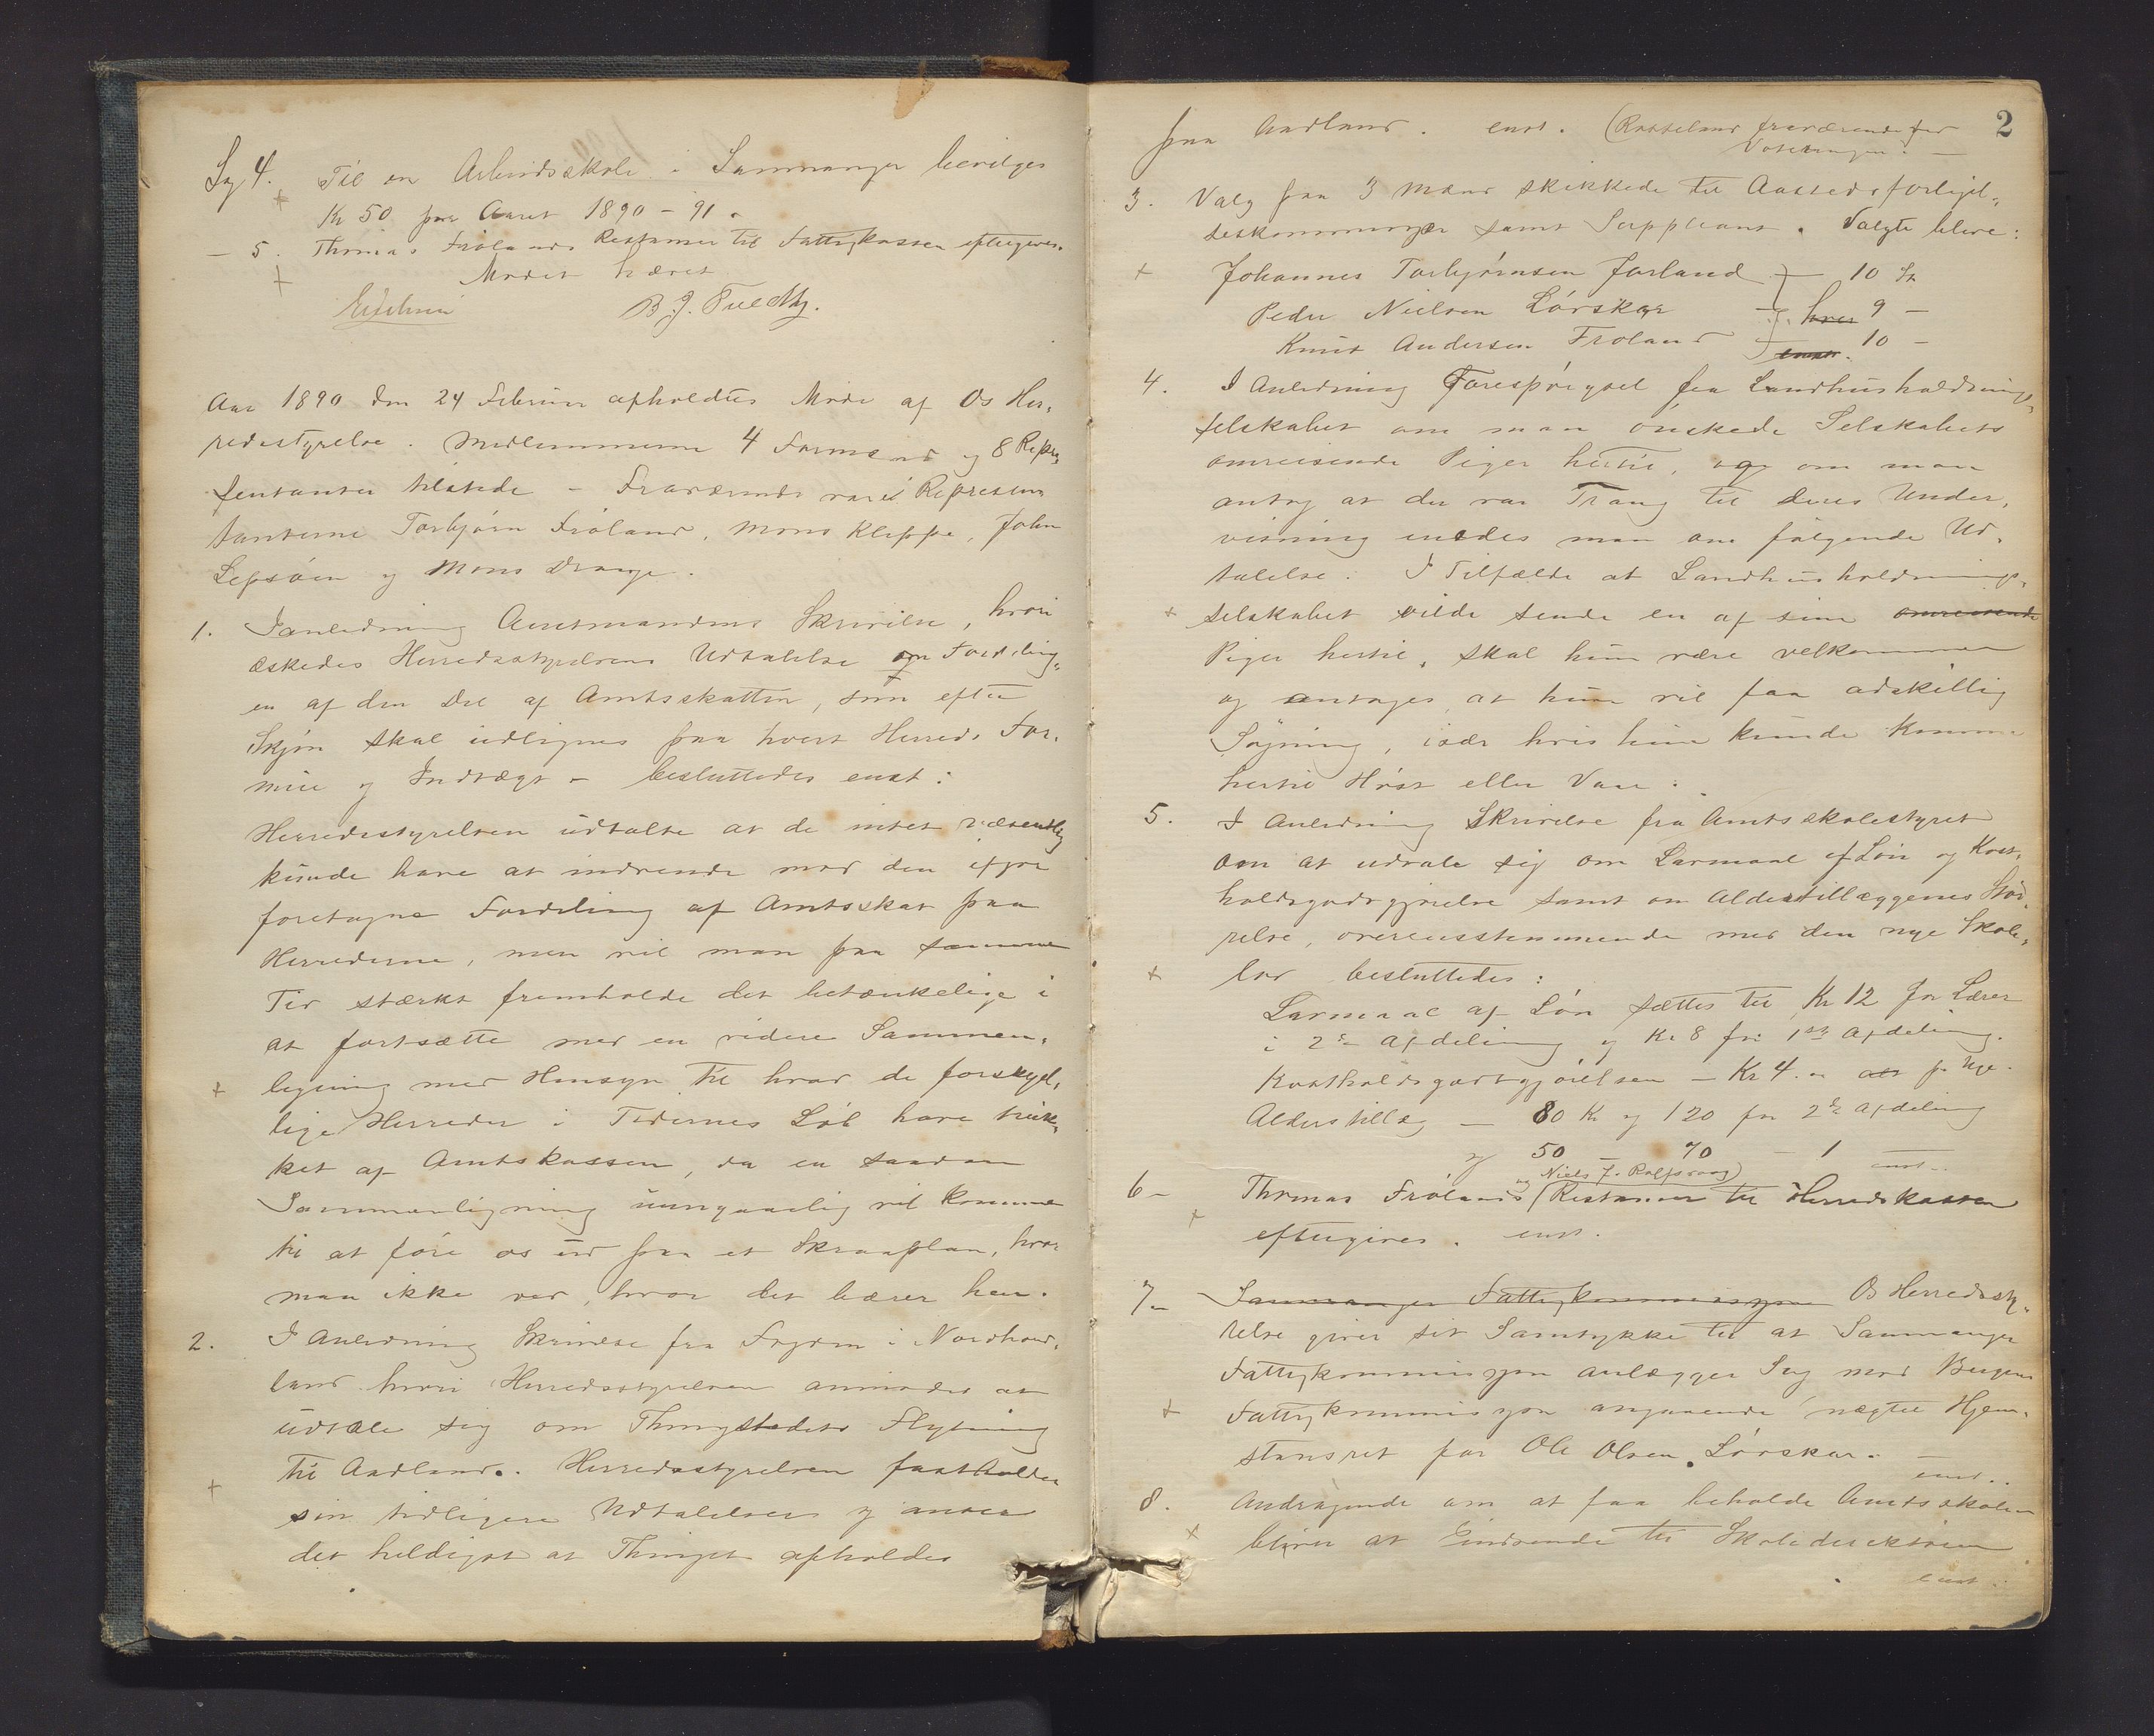 Sag 4. Til en Arbeidsskole i Sammanger bevilges
Kr 50 for Aaret 1890-91.
- 5. Thomas Frølands Restanser til Fattigkassen eftergives.
Mødet hævet
B J. Tvedt
Aar 1890 den 24 Februar afholdtes Møde af Os Her-
redsstyrelse. Medlemmerne 4 Formænd og 8 Repræ-
sentanter tilstede - Fraværende vare Represen
tanterne Torbjørn Frøland, Mons Kleppe, John
Lepsøen og Mons Drange.
1. I anledning Amtmandens Skrivelse, hvori
æskedes Herredsstyrelsens Udtalelse om Fordeling-
en af den Del af Amtsskatten, som efter
Skjøn skal udlignes paa hvert Herreds For-
mue og Indtægt - besluttedes enst:
Herredsstyrelsen udtalte at de intet væsentlig
kunde have at indvende mod den ifjor
foretagne Fordeling af Amtsskat paa
Herrederne, men vil man paa samme
Tid stærkt fremholde det betænkelige i
at fortsætte med en videre Sammen-
ligning med Hensyn til hvad de forskjel-
lige Herreder i Tidernes Løb have truk-
ket af Amtskassen, da en saadan
Sammenligning uungaaelig vil komme
til at føre os ud paa et Skraaplan, hvor
man ikke ved, hvor det bærer hen.
2. I Anledning Skrivelse fra Fogden i Nordhord-
land hvori Herredsstyrelsen anmodes at
udtale sig om Thingstedets Flytning
til Aadland. Herredsstyrelsen fastholder
sin tidligere Udtalelse og anser
det heldigst at Thinget afholdes
2
paa Aadland. enst. (Røtteland fraværende fra
Voteringen. -
3. Valg paa 3 Mænd skikkede til Aastedsforligel-
seskommisjær samt Suppleant. Valgte bleve:
Johannes Torbjørnsen Jarland - 10 St
Peder Nielsen Lørskar hver 9 -
Knut Andersen Frøland enst. 10 -
4. I Anledning Forespørgsel fra Landhusholdnings-
selskabet om man ønskede Selskabets
omreisende Piger hertil, og om man
antog at der var Trang til deres Under-
visning enedes man om følgende Ud-
talelse. I Tilfælde at Landhusholdnings-
selskabet vilde sende en af sine omreisende
Piger hertil, skal hun være velkommen
og antages, at hun vil faa adskillig
Søgning, især hvis hun kunde komme
hertil Høst eller Vaar.
5. I Anledning Skrivelse fra Amtsskolestyret
om at udtale sig om Larmaal af Løn og Kost-
holdsgodtgjørelse samt om Alderstillæggenes Stør-
relse, overensstemmende med den nye Skole-
lov besluttedes:
Larmaal af Løn sættes til Kr 12 for Lærer
i 2den Afdeling og Kr 8 for 1ste Afdeling.
Kostholdsgodtgjørelsen - Kr 4. pr Uge.
Alderstillæg - 80 Kr og 120 for 2den Afdeling
og 50 - 70 - 1 enst.
6 - Thomas Frølands (og Niels J. Rolfsvaag) Restanser til Herredskassen
eftergives. enst.
7 - Sammanger Fattigkommissjon Os Herredssty-
relse giver sit Samtykke til at Sammanger
Fattigkommissjon anlægger Sag mod Bergens
Fattigkommissjon angaaende nægtet Hjem-
stavnsret for Ole Olsen Lørskar. -
enst.
8. Andragende om at faa beholde Amtsskolen
bliver at indsende til Skoledirektøren
enst.